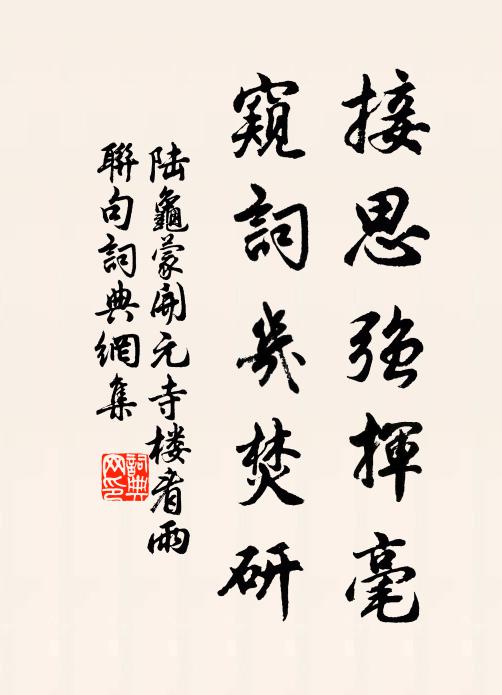 接思強揮毫
窺詞幾焚研
陆龜蒙開元寺楼看雨
聯句詞典網集
詞典網印